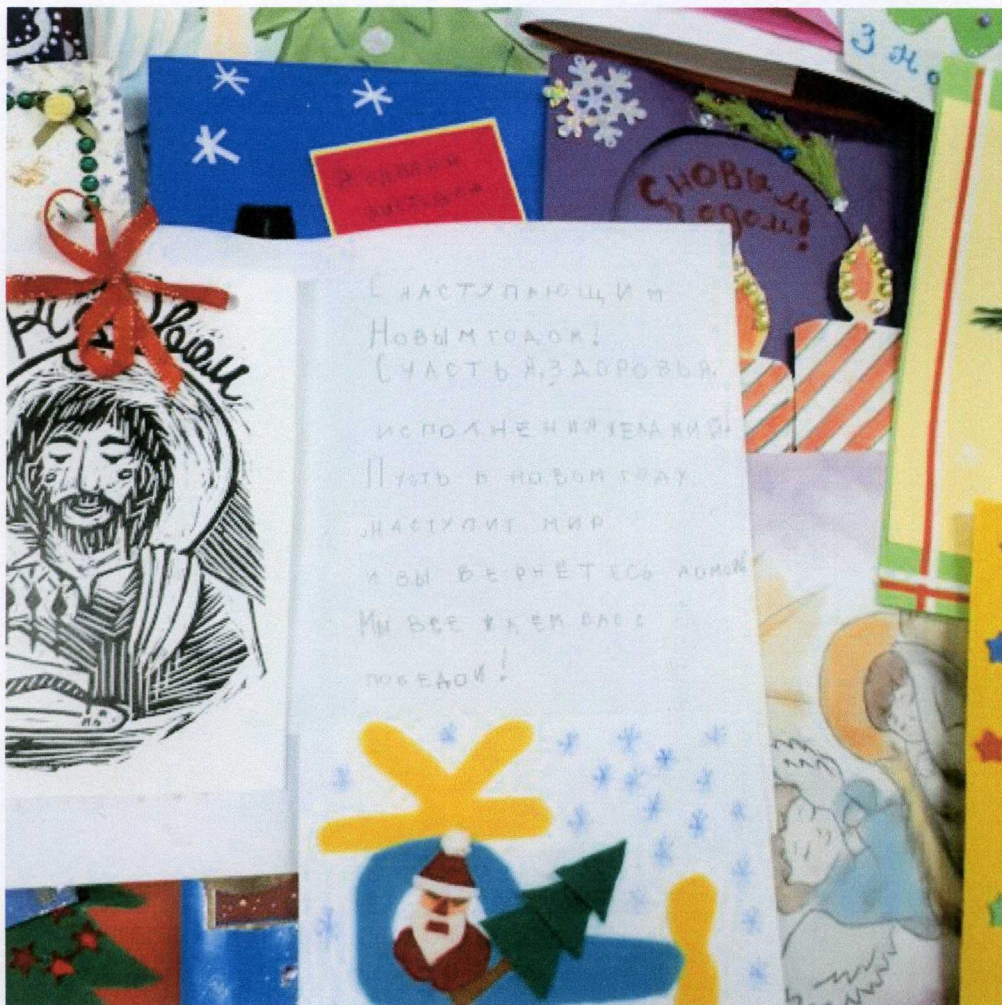 З
С НОВЫМ
годом!
С НАСТУПАЮЩИМ
НОВЫМ ГОДОМ!
СЧАСТЬЯ, ЗДОРОВЬЯ,
ИСПОЛНЕНИЯ ЖЕЛАНИЙ!
ПУСТЬ В НОВОМ ГОДУ
НАСТУПИТ МИР
И ВЫ ВЕРНЁТЕСЬ ДОМОЙ
МЫ ВСЕ ЖДЁМ ВАС С
ПОБЕДОЙ!